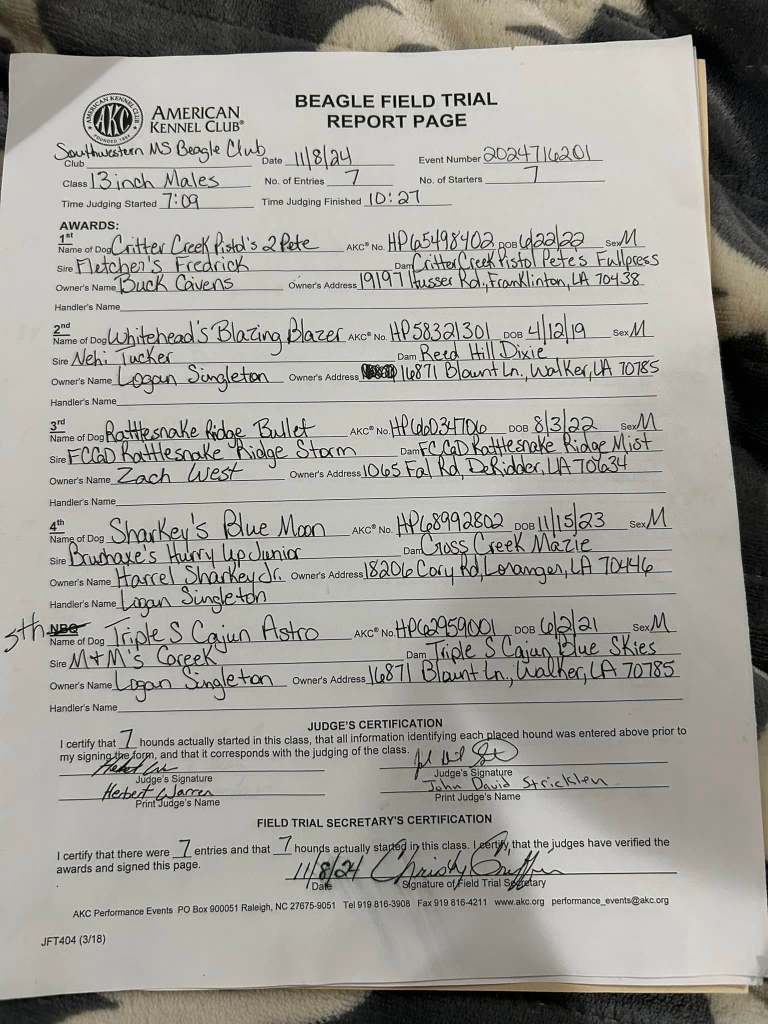 AMERICAN KENNEL CLUB®
AKC
FOUNDED 1884
BEAGLE FIELD TRIAL
REPORT PAGE
Southwestern MS Beagle Club
Club Date 11/8/24 Event Number 2024716201
Class 13 inch Males No. of Entries 7 No. of Starters 7
Time Judging Started 7:09 Time Judging Finished 10:27
AWARDS:
1st
Name of Dog Critter Creek Pistol's 2 Pete AKC® No. HP65498402 DOB 6/22/22 Sex M
Sire Fletcher's Fredrick Dam Critter Creek Pistol Pete's Fullpress
Owner's Name Buck Cavens Owner's Address 19197 Husser Rd., Franklinton, LA 70438
Handler's Name
2nd
Name of Dog Whitehead's Blazing Blazer AKC® No. HP58321301 DOB 4/12/19 Sex M
Sire Nehi Tucker Dam Reed Hill Dixie
Owner's Name Logan Singleton Owner's Address 16871 Blount Ln., Walker, LA 70785
Handler's Name
3rd
Name of Dog Rattlesnake Ridge Bullet AKC® No. HP66034706 DOB 8/3/22 Sex M
Sire FCGD Rattlesnake Ridge Storm Dam FCGD Rattlesnake Ridge Mist
Owner's Name Zach West Owner's Address 1065 Fal Rd, DeRidder, LA 70634
Handler's Name
4th
Name of Dog Sharkey's Blue Moon AKC® No. HP68992802 DOB 11/15/23 Sex M
Sire Brushaxe's Hurry Up Junior Dam Cross Creek Mazie
Owner's Name Harrel Sharkey Jr. Owner's Address 18206 Cory Rd, Loranger, LA 70446
Handler's Name Logan Singleton
5th NBQ
Name of Dog Triple S Cajun Astro AKC® No. HP62959001 DOB 6/2/21 Sex M
Sire M+M's Coreek Dam Triple S Cajun Blue Skies
Owner's Name Logan Singleton Owner's Address 16871 Blount Ln., Walker, LA 70785
Handler's Name
JUDGE'S CERTIFICATION
I certify that 7 hounds actually started in this class, that all information identifying each placed hound was entered above prior to
my signing the form, and that it corresponds with the judging of the class.
Judge's Signature Judge's Signature
Herbert Warren John David Stricklen
Print Judge's Name Print Judge's Name
FIELD TRIAL SECRETARY'S CERTIFICATION
I certify that there were 7 entries and that 7 hounds actually started in this class. I certify, that the judges have verified the
awards and signed this page.
11/8/24 Christy Griffin
Date Signature of Field Trial Secretary
AKC Performance Events PO Box 900051 Raleigh, NC 27675-9051 Tel 919 816-3908 Fax 919 816-4211 www.akc.org performance_events@akc.org
JFT404 (3/18)